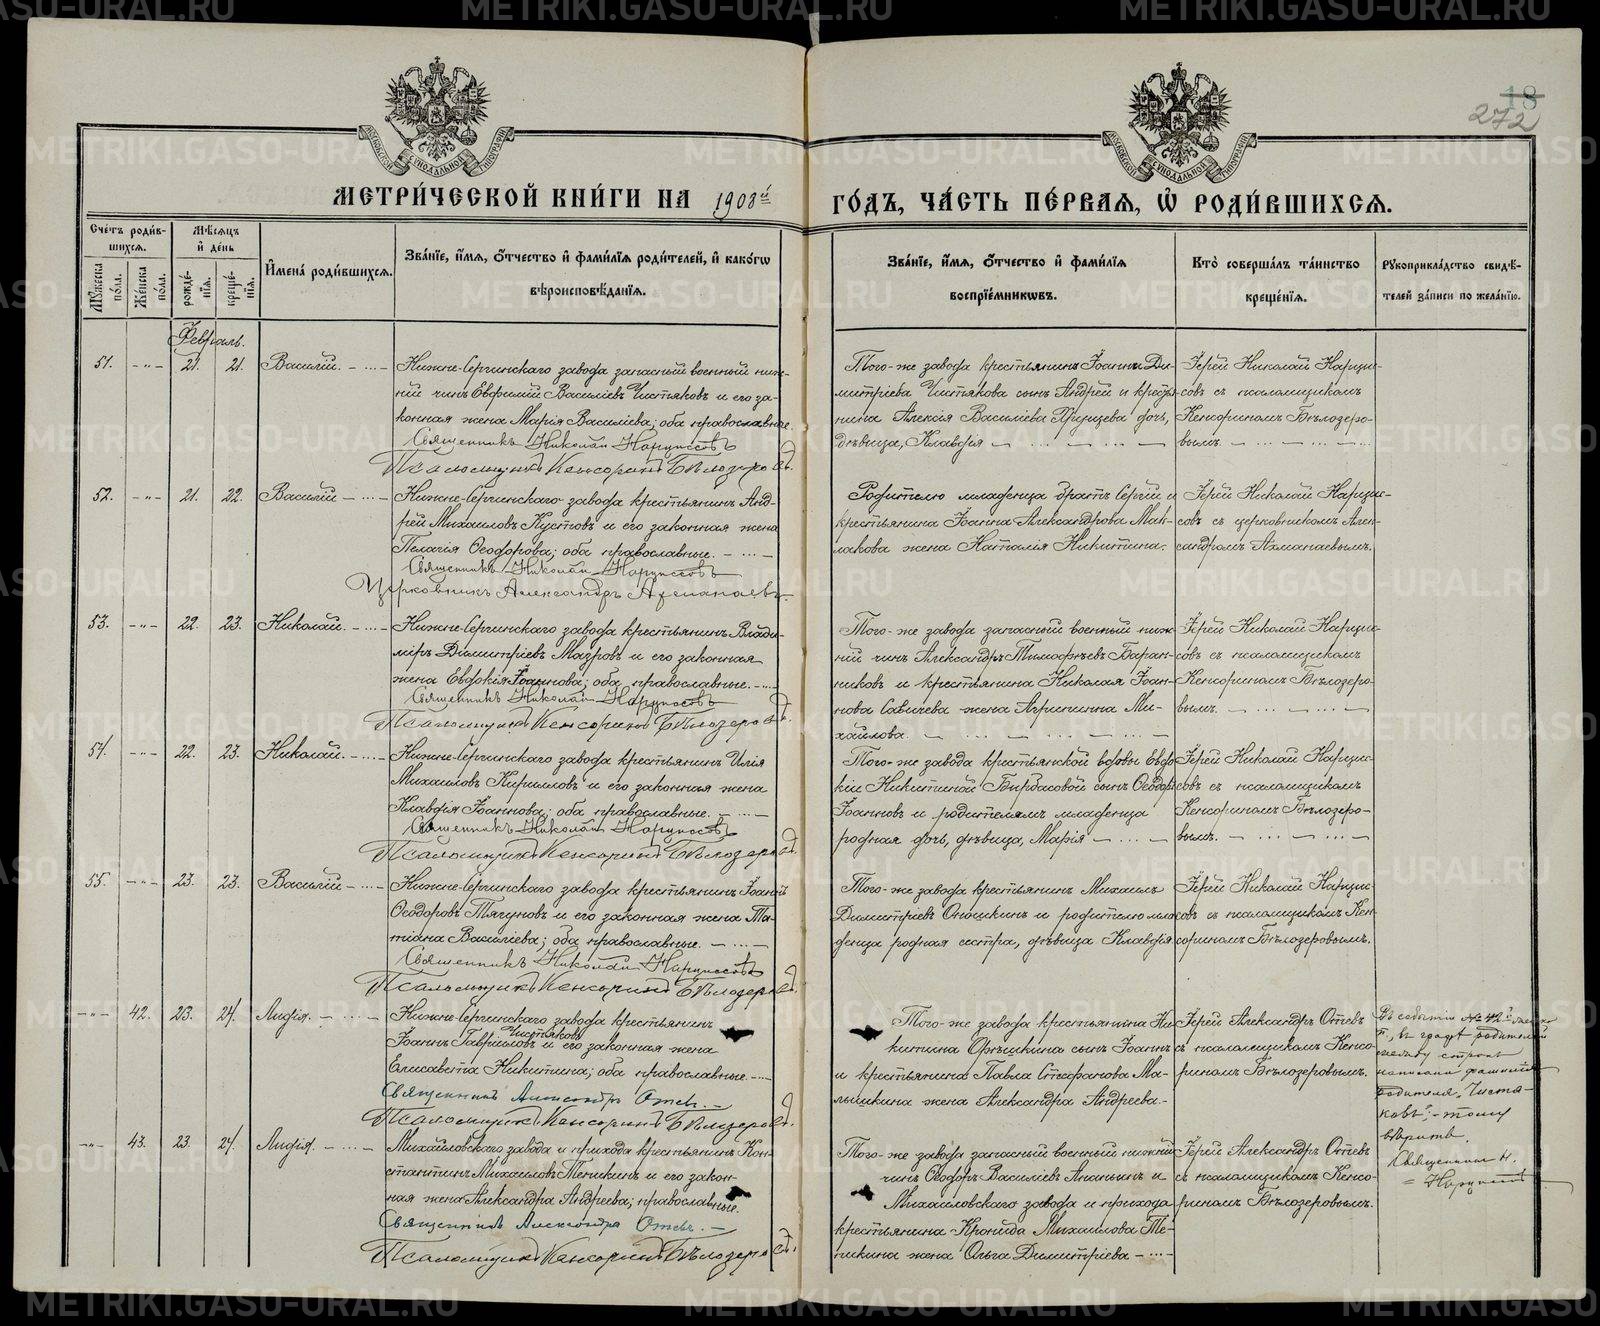 18
272
МЕТРИ́ЧЕСКОЙ КНИ́ГИ НА 1908й ГО́ДЪ, ЧА́СТЬ ПЕ́РВАЯ, Ѡ҆ РОДИ́ВШИХСЯ.
Сче́тъ роди́вшихся.
Мꙋ́жеска по́ла.
Же́нска по́ла.
Мѣ́сяцъ и҆ де́нь
рожде́нїя.
креще́нїя.
И҆мена̀ роди́вшихся.
Зва́нїе, и҆́мя, ѻ҆́тчество и҆ фами́лїя роди́телей, и҆ како́гѡ
вѣроисповѣ́данїя.
Зва́нїе, и҆́мя, ѻ҆́тчество и҆ фами́лїя
воспрїе́мникѡвъ.
Кто̀ соверша́лъ та́инство
креще́нїя.
Рꙋкоприкла́дство свидѣ́-
телей за́писи по жела́нїю.
Февраль.
51. -„- 21. 21. Василій.
Нижне-Сергинскаго завода запасный военный ниж-
ній чинъ Евфимій Василіевъ Чистяковъ и его за-
конная жена Марія Василіева; оба православные.
Священникъ Николай Нарциссовъ
Псаломщикъ Кенсоринъ Бѣлозеровъ.
Того-же завода крестьянинъ Іоаннъ Ди-
митріева Чистякова сынъ Андрей и кресть-
нина Алексія Василіева дочь,
дѣвица, Клавдія
Іерей Николай Нарцис-
совъ съ псаломщикомъ
Кенсориномъ Бѣлозеро-
вымъ.
52. -„- 21. 22. Василій
Нижне-Сергинскаго завода крестьянинъ Анд-
рей Михаиловъ Кустовъ и его законная жена
Пелагія Ѳеодорова; оба православные.
Священникъ Николай Нарциссовъ
Церковникъ Александръ Ахманаевъ.
Родителю младенца братъ Сергій и
крестьянина Іоанна Александрова Мак-
лакова жена Наталія Никитина.
Іерей Николай Нарцис-
совъ съ церковникомъ Алек-
сандромъ Ахманаевымъ.
53. -„- 22. 23. Николай.
Нижне-Сергинскаго завода крестьянинъ Влади-
міръ Димитріевъ Мазровъ и его законная
жена Евдокія Іоаннова; оба православные.
Священникъ Николай Нарциссовъ
Псаломщикъ Кенсоринъ Бѣлозеровъ.
Того-же завода запасный военный ниж-
ній чинъ Александръ Тимоѳѣевъ Баран-
никовъ и крестьянина Николая Іоан-
нова Савичева жена Агрипина Ми-
хаилова.
Іерей Николай Нарцис-
совъ съ псаломщикомъ
Кенсориномъ Бѣлозеро-
вымъ.
54. -„- 22. 23. Николай.
Нижне-Сергинскаго завода крестьянинъ Илія
Михаиловъ Кириловъ и его законная жена
Клавдія Іоаннова; оба православные.
Священникъ Николай Нарциссовъ
Псаломщикъ Кенсоринъ Бѣлозеровъ.
Того-же завода крестьянской вдовы Евдо-
кіи Никитиной Бырдасовой сынъ Ѳеодоръ
Іоанновъ и родителямъ младенца
родная дочь, дѣвица, Марія
Іерей Николай Нарцис-
совъ съ псаломщикомъ
Кенсориномъ Бѣлозеро-
вымъ.
55. -„- 23. 23. Василій
Нижне-Сергинскаго завода крестьянинъ Іоаннъ
Ѳеодоровъ Тягуновъ и его законная жена Та-
тіана Василіева; оба православные.
Священникъ Николай Нарциссовъ
Псаломщикъ Кенсоринъ Бѣлозеровъ.
Того-же завода крестьянинъ Михаилъ
Димитріевъ Оношкинъ и родителю мла-
денца родная сестра, дѣвица Клавдія
Іерей Николай Нарцис-
совъ съ псаломщикомъ Кен-
сориномъ Бѣлозеровымъ.
-„- 42. 23. 24. Лидія.
Нижне-Сергинскаго завода крестьянинъ
Чистяковъ
Іоаннъ Гавриловъ и его законная жена
Елисавета Никитина; оба православные.
Священникъ Александръ Отевъ.
Псаломщикъ Кенсоринъ Бѣлозеровъ.
Того-же завода крестьянина Ни-
китина Орѣшкина сынъ Іоаннъ
и крестьянина Павла Стефанова Ма-
лышкина жена Александра Андреева.
Іерей Александръ Отевъ
съ псаломщикомъ Кенсо-
риномъ Бѣлозеровымъ.
Въ событіи № 42й
въ графѣ родителей
между строкъ
написана фамилія
родителя „Чистя-
ковъ“. – тому
вѣрить.
Священникъ Н.
Нарциссовъ
-„- 43. 23. 24. Лидія.
Михайловскаго завода и прихода крестьянинъ Кон-
стантинъ Михаиловъ Тепикинъ и его закон-
ная жена Александра Андреева; православные.
Священникъ Александръ Отевъ.
Псаломщикъ Кенсоринъ Бѣлозеровъ.
Того-же завода запасный военный нижній
чинъ Ѳеодоръ Василіевъ Ананьинъ и
Михаиловскаго завода и прихода
крестьянина Кронида Михаилова Те-
пикина жена Ольга Димитріева
Іерей Александръ Отевъ
съ псаломщикомъ Кенсо-
риномъ Бѣлозеровымъ.
METRIKI.GASO-URAL.RU